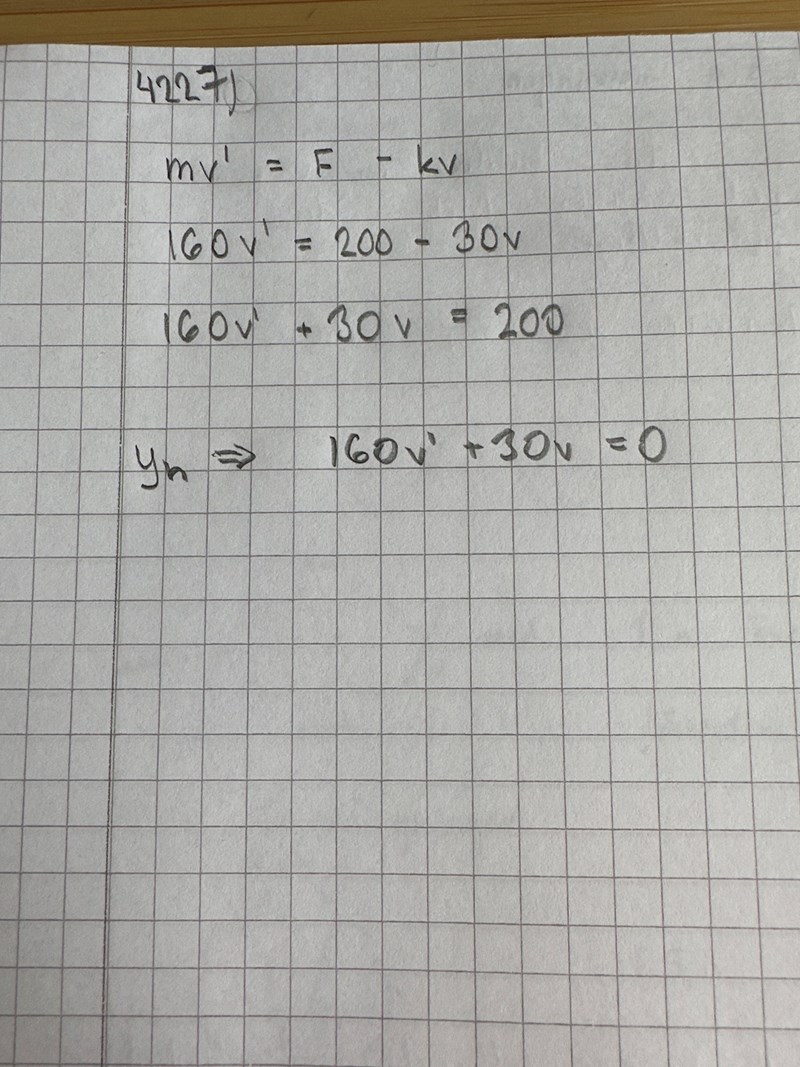 4227)
mv' = F - kv
160v' = 200 - 30v
160v' + 30v = 200
yh ⇒ 160v' + 30v = 0